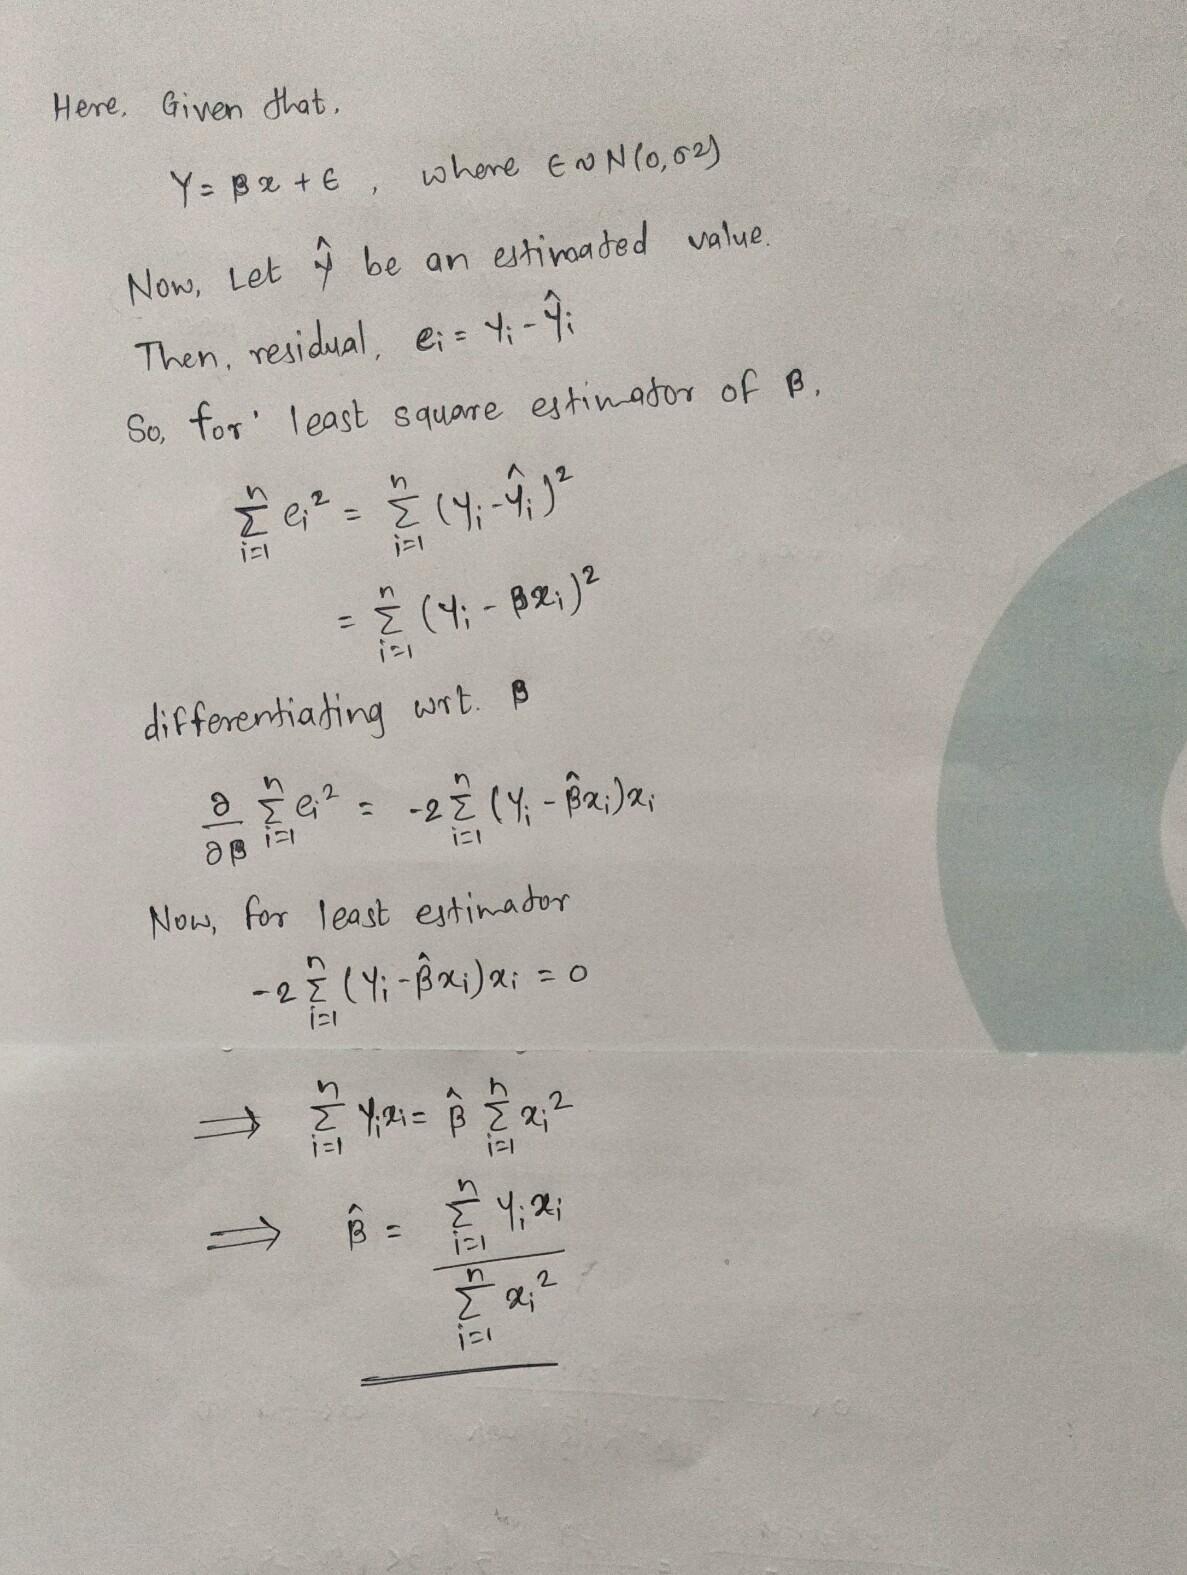 Here. Given that.
Y = βx + ϵ , where ϵ ~ N(0, σ2)
Now, Let ŷ be an estimated value.
Then, residual, eᵢ = Yᵢ - Ŷᵢ
So, for least square estimator of β,
∑ᵢ₌₁ⁿ eᵢ² = ∑ᵢ₌₁ⁿ (Yᵢ - Ŷᵢ)²
= ∑ᵢ₌₁ⁿ (Yᵢ - βxᵢ)²
differentiating wrt. β
∂/∂β ∑ᵢ₌₁ⁿ eᵢ² = -2 ∑ᵢ₌₁ⁿ (Yᵢ - β̂xᵢ)xᵢ
Now, for least estimator
-2 ∑ᵢ₌₁ⁿ (Yᵢ - β̂xᵢ)xᵢ = 0
⟹ ∑ᵢ₌₁ⁿ Yᵢxᵢ = β̂ ∑ᵢ₌₁ⁿ xᵢ²
⟹ β̂ = ∑ᵢ₌₁ⁿ Yᵢxᵢ / ∑ᵢ₌₁ⁿ xᵢ²